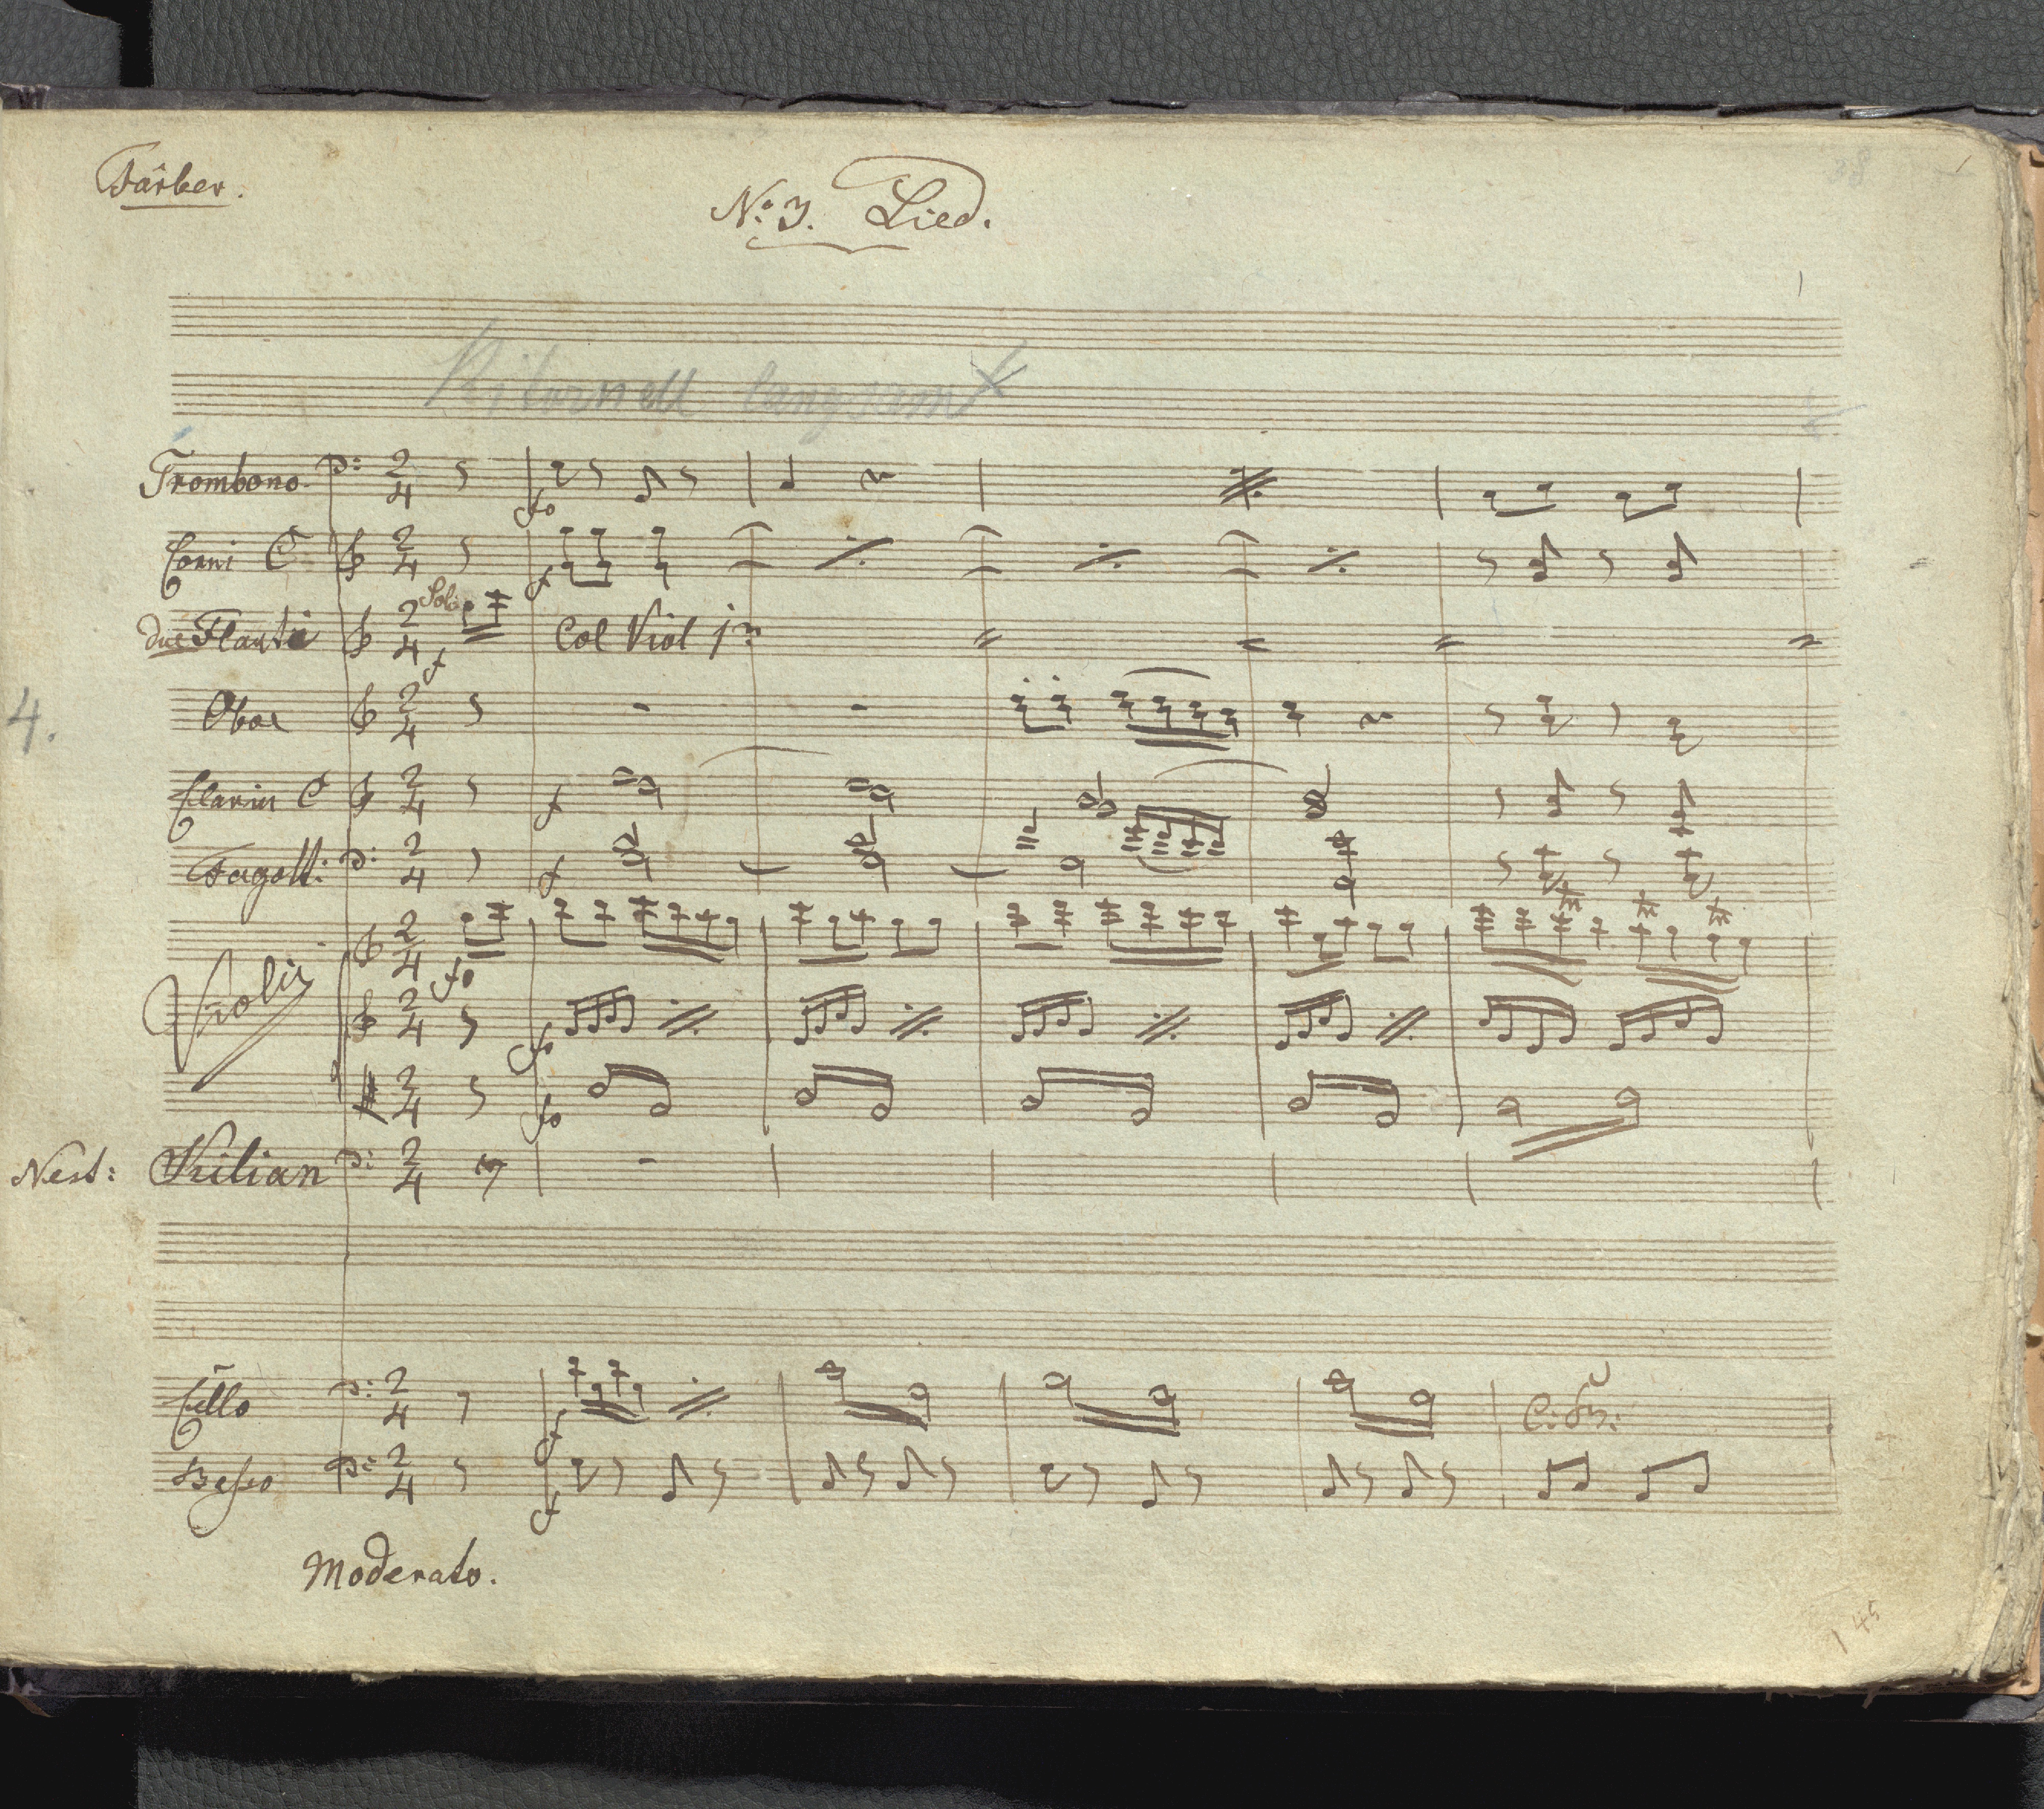 Färber.
No: 3. Lied.
Ritornell langsam
Trombono
Corni C
Solo
due Flauti
Col Viol 1mo
4.
Oboe
Clarin C
Fagott:
Violin
Nest: Kilian
Cello
C: B:
Basso
Moderato.
145